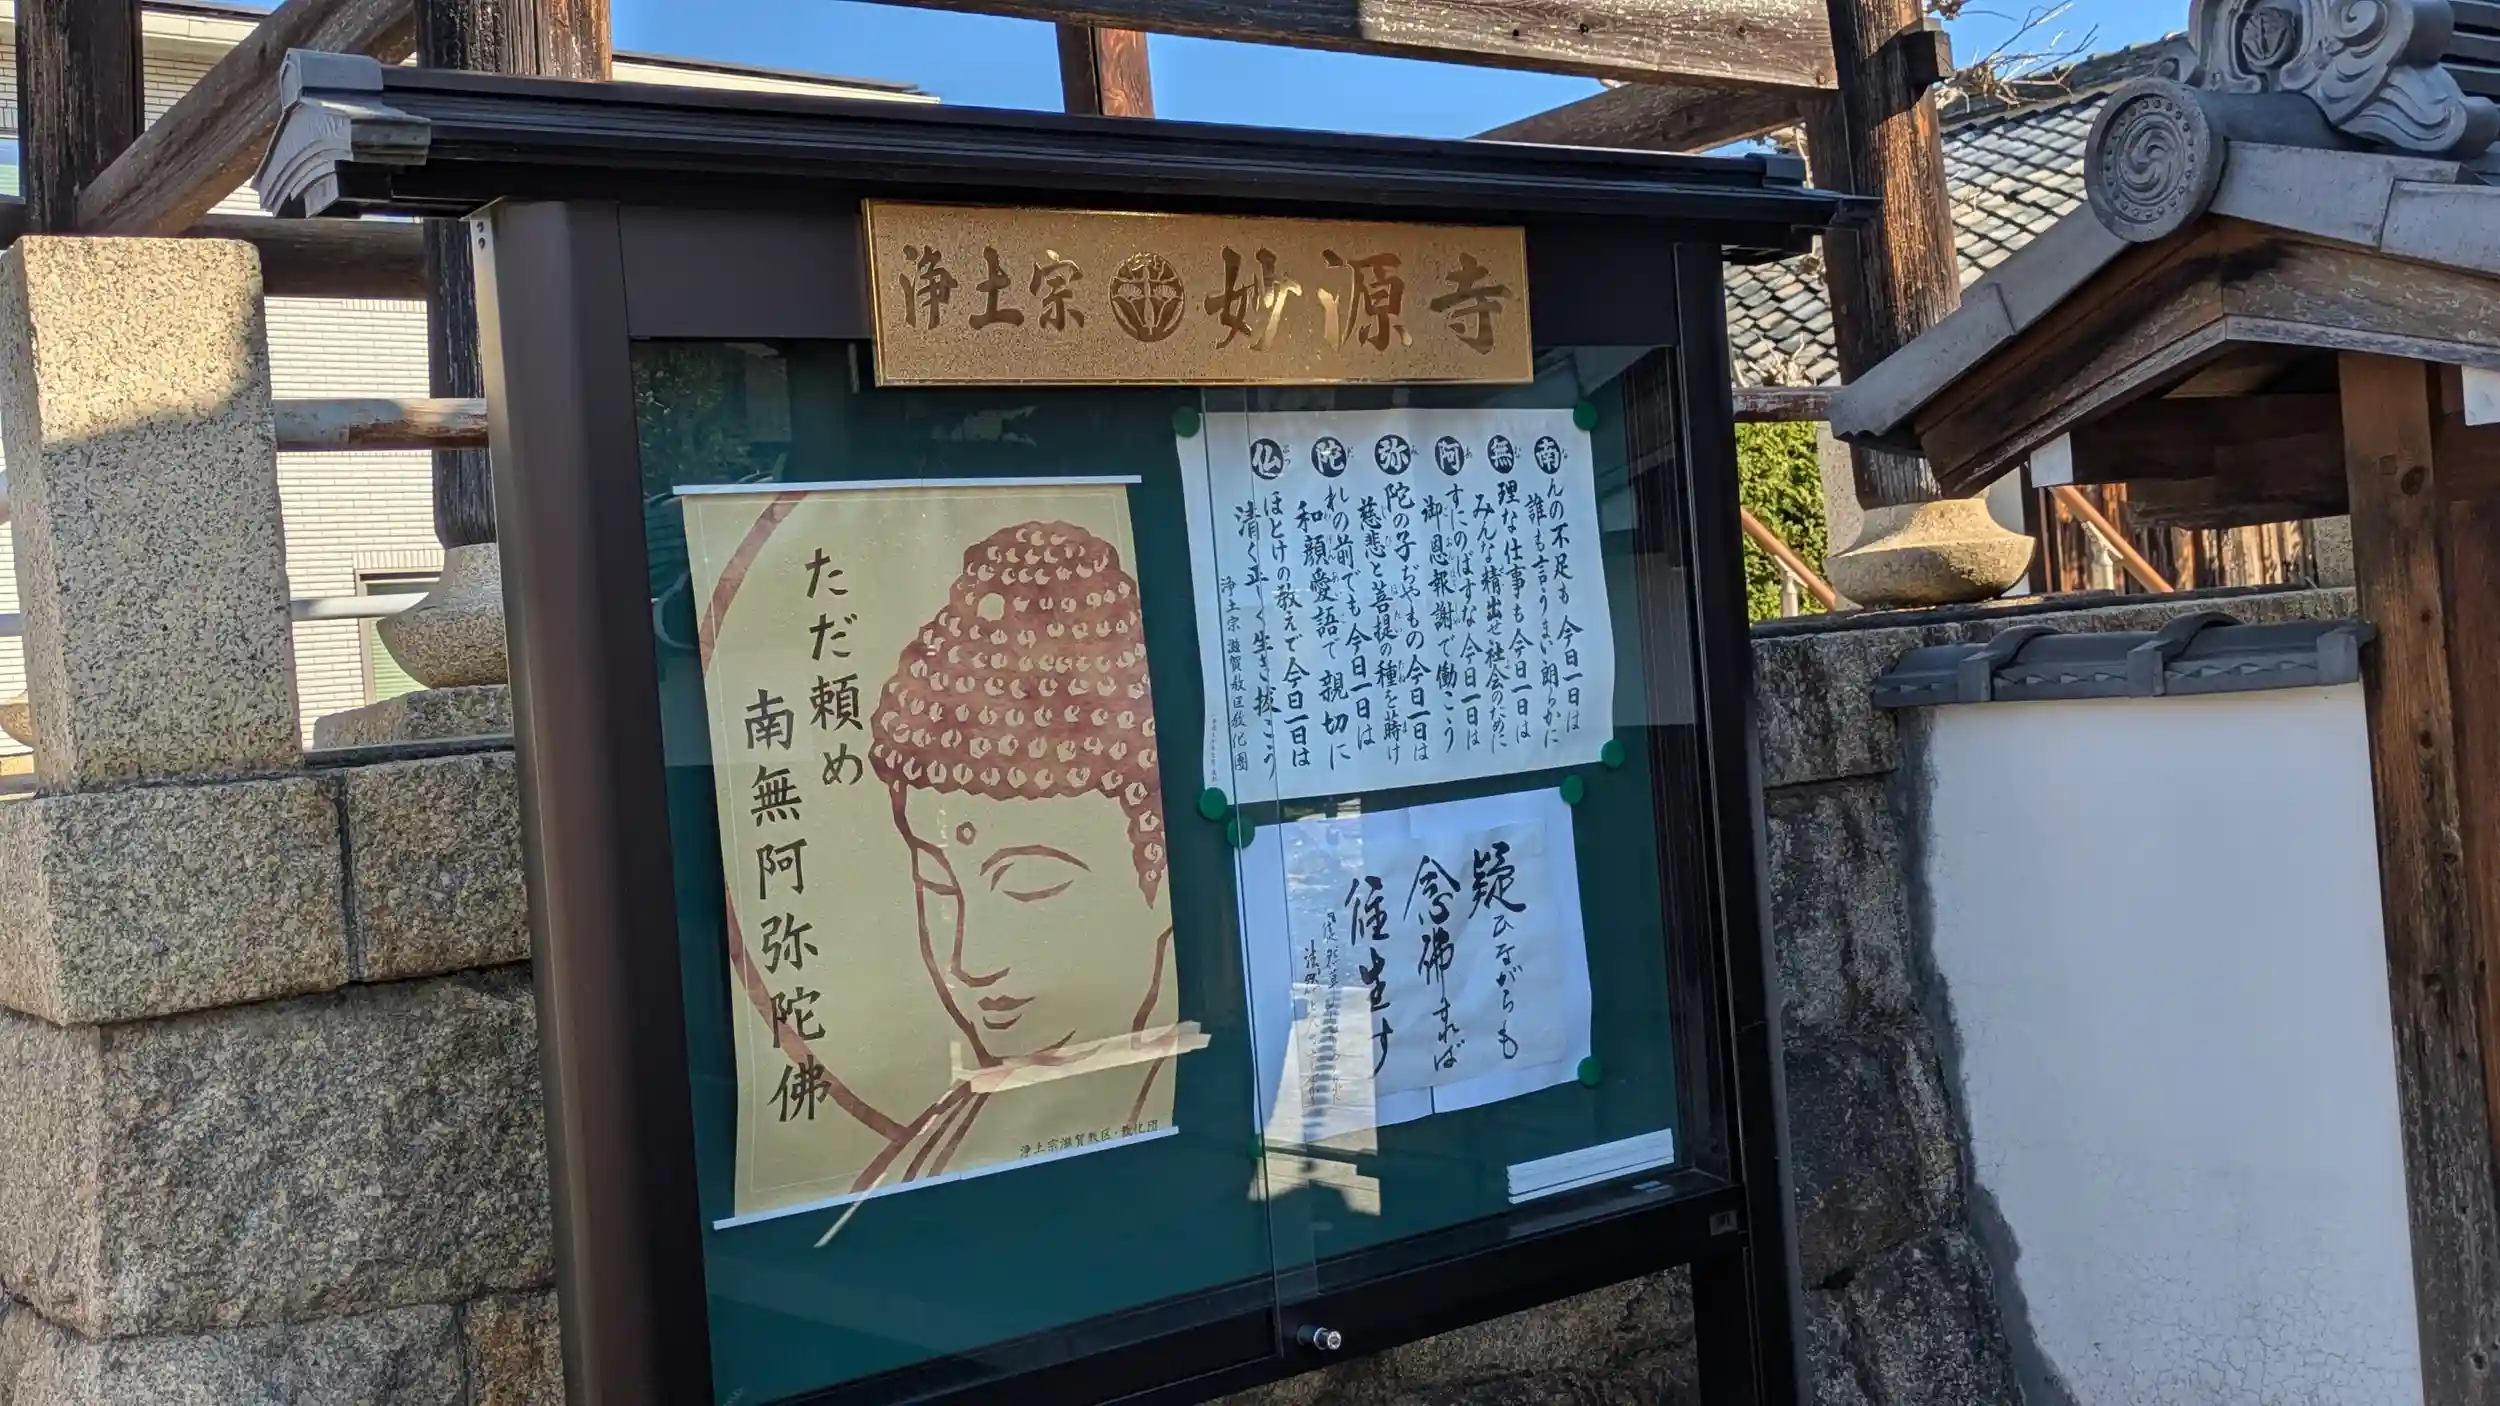 浄土宗 妙源寺
南んの不足も今日一日は
誰も言うまい朗らかに
無理な仕事も今日一日は
みんな精出せ社会のために
阿すにのばすな今日一日は
御恩報謝で働こう
弥陀の子ぢやもの今日一日は
慈悲と菩提の種を蒔け
陀れの前でも今日一日は
和顔愛語で親切に
仏ほとけの教えで今日一日は
清く正しく生き抜こう
浄土宗滋賀教区教化団
ただ頼め
南無阿弥陀佛
浄土宗滋賀教区・教化団
疑ひながらも
念佛すれば
往生す